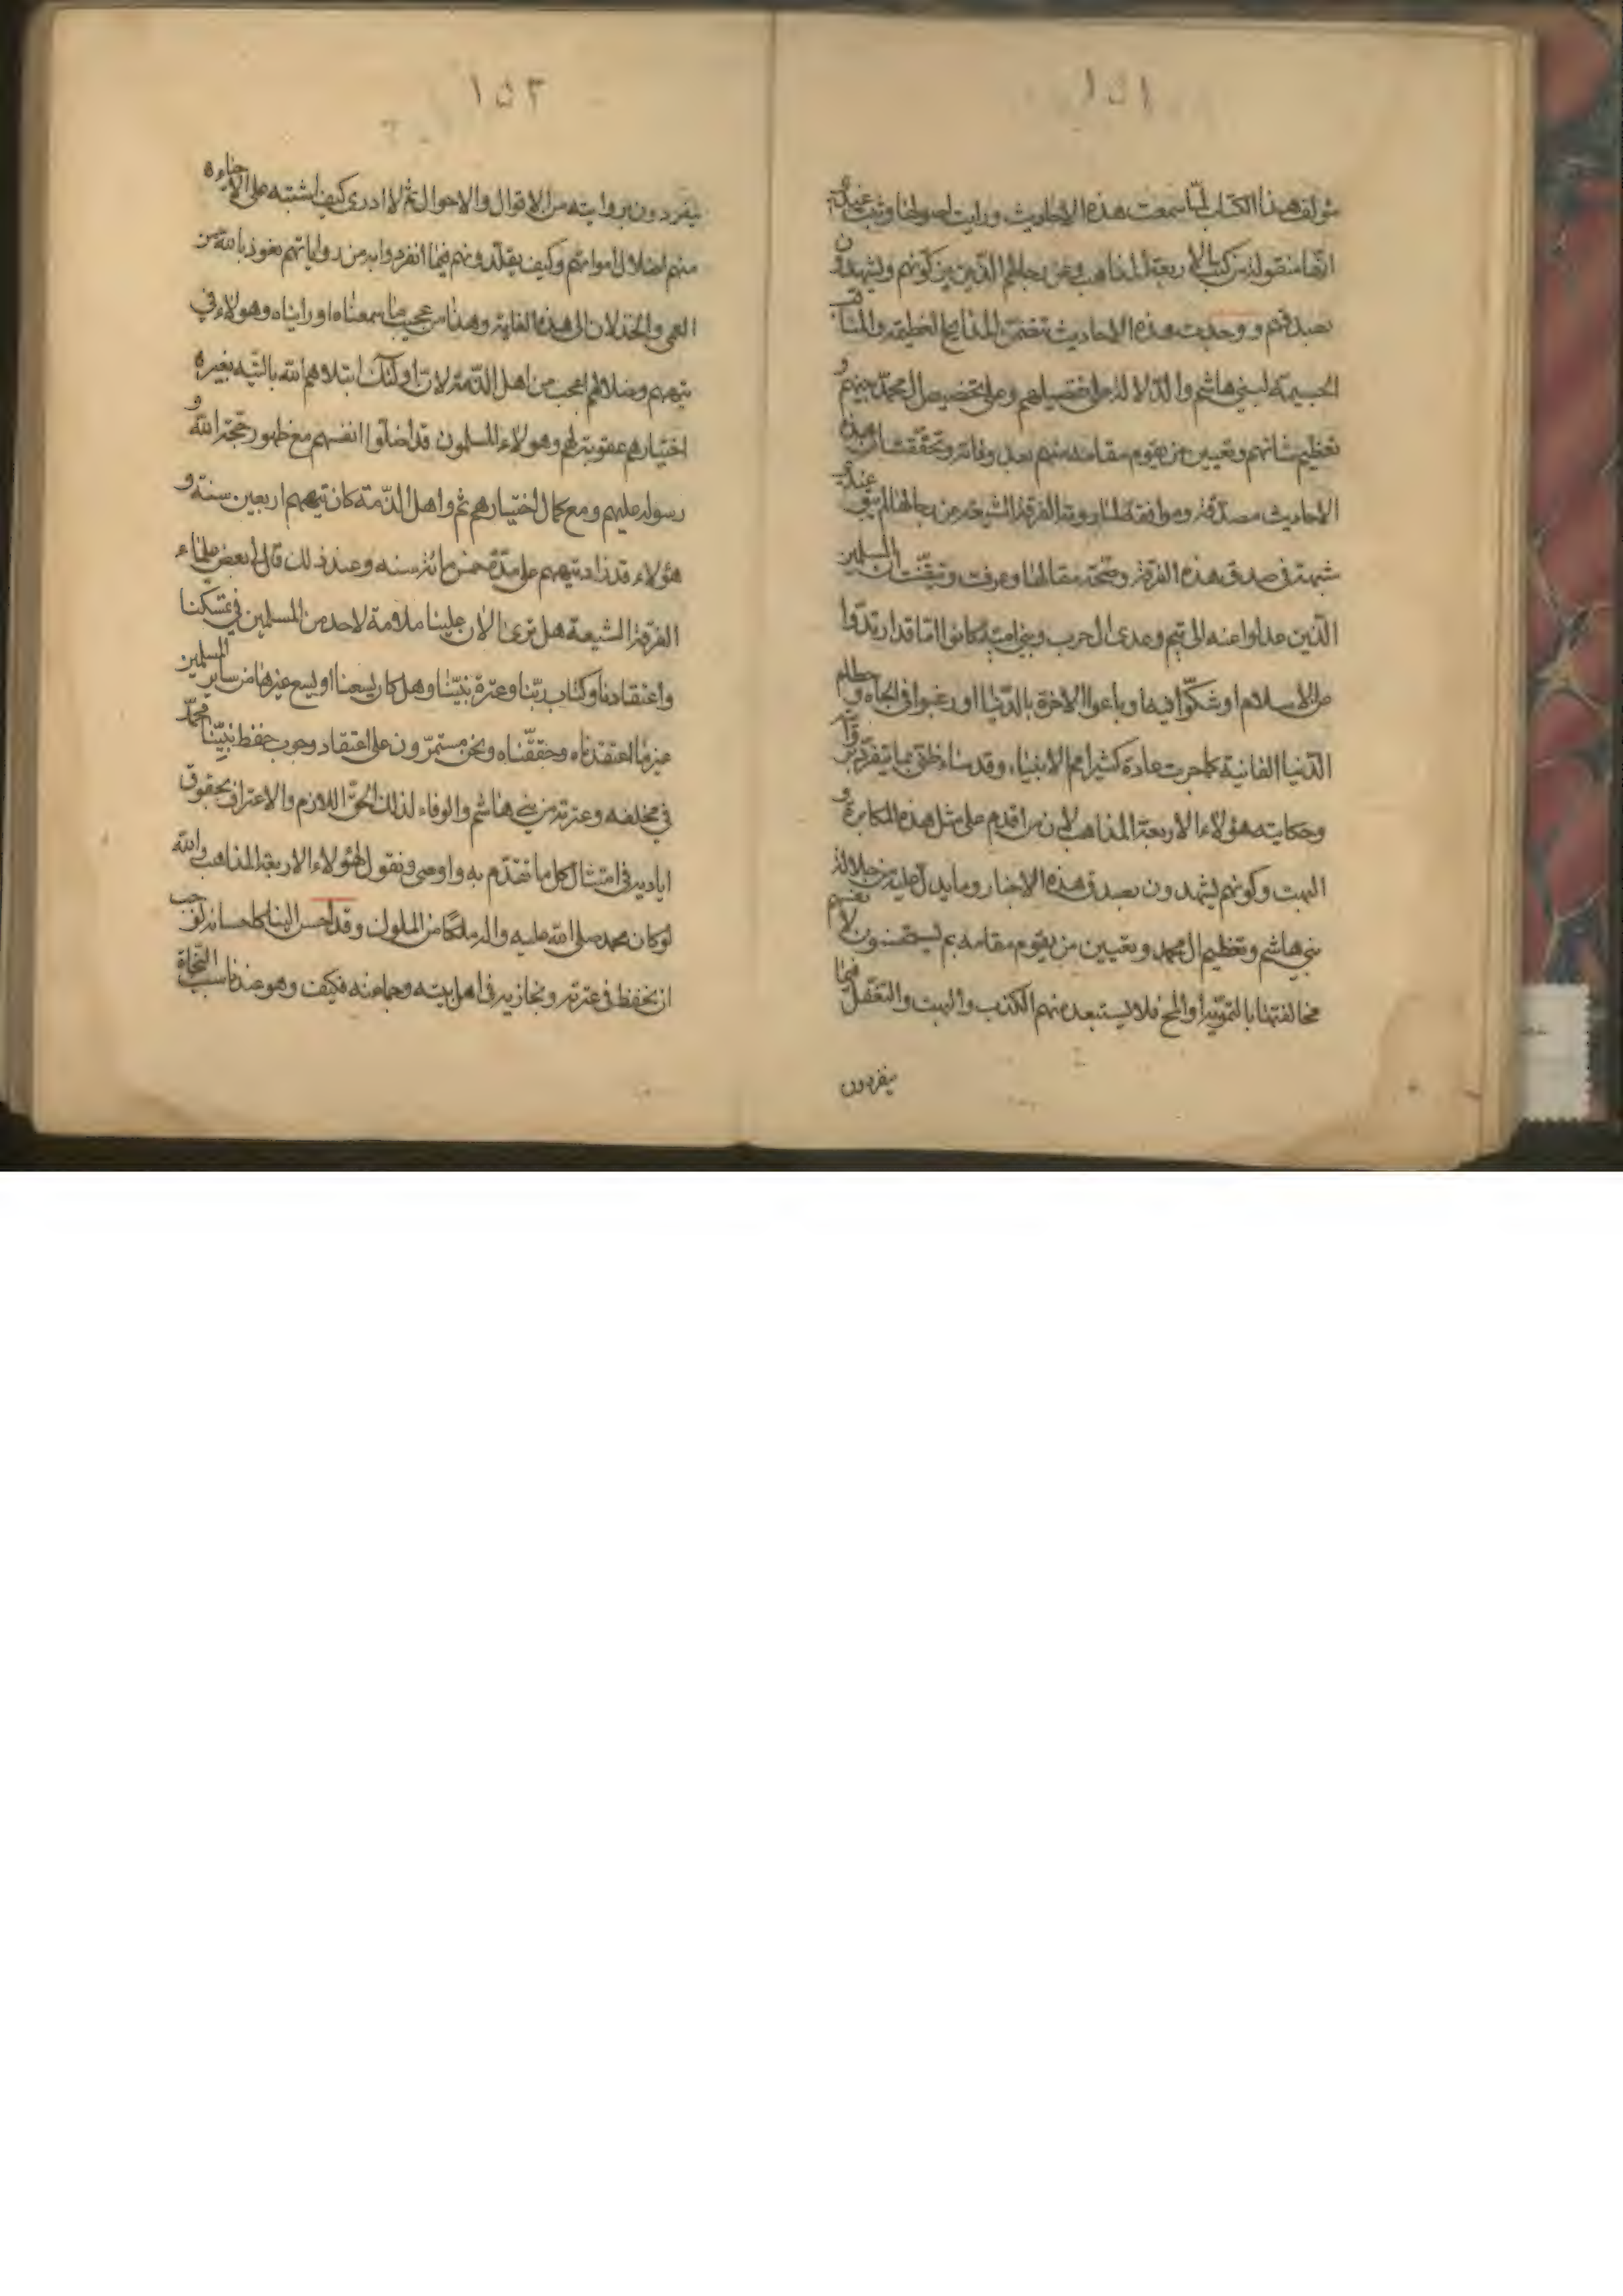 ١٥١
مؤلف هذا الكتاب لما سمعت هذه الاحاديث ورايت اصولها وثبت عندي
انها منقولة من كتب الاربعة المذاهب وعن رجالهم الذين يزكونهم ويشهدون
بصدقهم ووجدت هذه الاحاديث تتضمن المدايح العظيمة والمناقب
الجسيمة لبني هاشم والدلالة على تفضيلهم وعلى تخصيص آل محمد بينهم و
تعظيم شانهم وتعيين من يقوم مقامه منهم بعد وفاته وتحققت ان هذه
الاحاديث مصدقة وموافقة لما روته الفرقة الشيعة من رجالها لم يبق عندي
شبهة في صدق هذه الفرقة وصحة مقالها وعرفت وتيقنت ان المسلمين
الذين عدلوا عنه الى تيم وعدى وال حرب وبني امية كانوا اما قد ارتدوا
عن الاسلام او شكوا فيها وباعوا الاخرة بالدنيا او رغبوا في الجاه و حطام
الدنيا الفانية كما جرت عادة كثير امم الانبياء، وقد ساء ظني بما يتفرد بروايته
وحكايته هؤلاء الاربعة المذاهب لان من اقدم على مثل هذه المكابرة و
البهت وكونهم يشهدون بصدق هذه الاخبار وما يدل عليه من جلالة
بني هاشم وتعظيم ال محمد وتعيين من يقوم مقامه ثم يستحسنون لانفسهم
مخالفتها بالتمويه او المح فلا يستبعد منهم الكذب والبهت والتغفل فيما
يتفردون
١٥٢
يتفردون بروايته من الاقوال والاحوال ثم لا ادرى كيف اشتبه على الاحياء
منهم ضلال امواتهم وكيف يقلدونهم فيما انفردوا به من رواياتهم نعوذ بالله من
العمى والخذلان الى هذه الغاية وهذا من عجيب ما سمعناه او رايناه وهولاء في
تيههم وضلالهم اعجب من اهل الذمة لان اولئك ابتلاهم الله بالتيه بغير
اختيارهم عقوبة لهم وهولاء المسلمون قد اضلوا انفسهم مع ظهور حجة الله و
رسوله عليهم ومع كمال اختيارهم ثم واهل الذمة كان تيههم اربعين سنة و
هؤلاء قد زاد تيههم على مدة خمس مائة سنه وعند ذلك قال لي بعض علماء
الفرقة الشيعة هل ترى الان علينا ملامة لاحد من المسلمين في تمسكنا
واعتقادنا وكتاب ربنا وعترة نبينا وهل كان يسعنا او يسع غيرنا من ساير المسلمين
غير ما اعتقدناه وحققناه ونحن مستمرون على اعتقاد وجوب حفظ نبينا محمد
في مخلفه وعترته من بني هاشم والوفاء لذلك الحق اللازم والاعتراف بحقوق
اياديه في امتثال كل ما تقدم به واوصى ونقول لهؤلاء الاربعة المذاهب والله
لو كان محمد صلى الله عليه واله ملكا من الملوك وقد احسن الينا كاحسانه لوجب
ان نحفظ في عترته ونجازيه في اهل بيته وجماعته فكيف وهو عندنا سبب النجاة